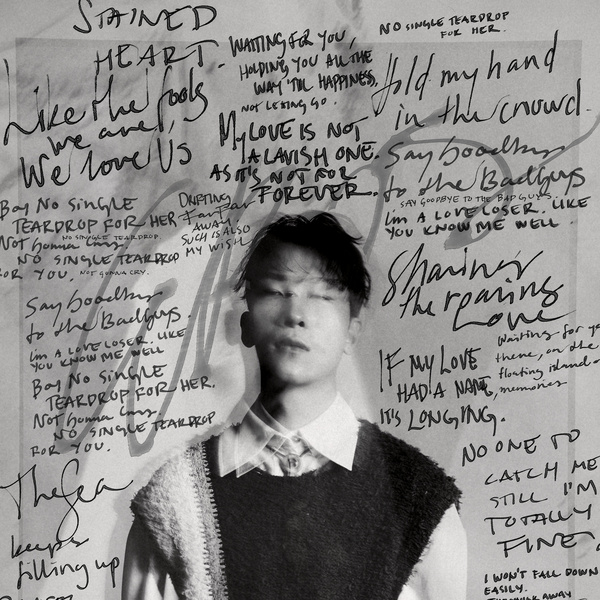 STAINED
HEART
Like the fools
we are,
We love Us
WAITING FOR YOU,
HOLDING YOU ALL THE
WAY 'TIL HAPPINESS.
NOT LETING GO.
NO SINGLE TEARDROP
FOR HER.
Hold my hand
in the crowd.
My LOVE IS NOT
A LAVISH ONE.
AS IT'S NOT FOR
FOREVER.
Say Goodbye
to the Badguys
SAY GOODBYE TO THE BAD GUYS
I'm A LOVE LOSER. LIKE
YOU KNOW ME WELL.
Boy No SINGLE
TEARDROP FOR HER
NO SINGLE TEARDROP.
Not Gonna Cry
NO SINGLE TEARDROP
FOR YOU. NOT GONNA CRY.
DRIFTING
Far Far
AWAY.
SUCH IS ALSO
MY WISH
Sharing
the roaring
Love
Say Goodbye
to the Badguys.
I'm A LOVE LOSER. LIKE
YOU KNOW ME WELL
Boy No SINGLE
TEARDROP FOR HER.
Not Gonna Cry
NO SINGLE TEARDROP
FOR YOU.
IF MY LOVE
HAD A NAME,
IT'S LONGING.
Waiting for yo
there, on the
floating island
memories
The Sea
keeps
filling up
NO ONE TO
CATCH ME
STILL I'M
TOTALLY
FINE
I WON'T FALL DOWN
EASILY.
AWAY